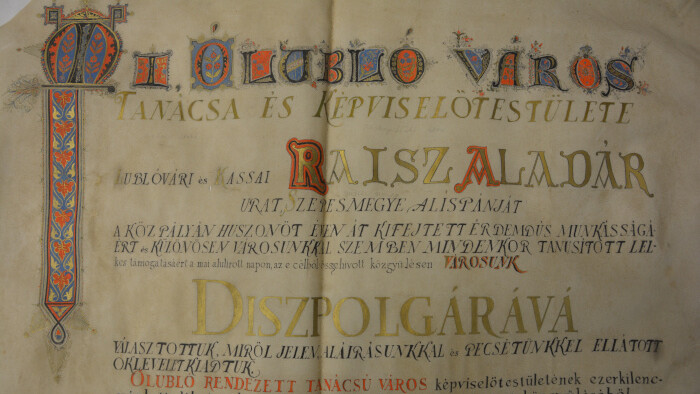 MI, ÓLUBLÓ VÁROS
TANÁCSA ÉS KÉPVISELŐTESTÜLETE
LUBLÓVÁRI és KASSAI RAISZ ALADÁR
URAT, SZEPESMEGYE, ALISPÁNJÁT
A KÖZPÁLYÁN HUSZONÖT ÉVEN ÁT KIFEJTETT ÉRDEMDÚS MUNKÁSSÁGA-
ÉRT és KÜLÖNÖSEN VÁROSUNKKAL SZEMBEN MINDENKOR TANUSÍTOTT LEL-
kes támogatásáért a mai alulirott napon, az e célból egybehivott közgyűlésen VÁROSUNK
DISZPOLGÁRÁVÁ
VÁLASZTOTTUK, MIRŐL JELEN ALÁIRÁSUNKKAL és PECSÉTÜNKKEL ELLÁTOTT
OKLEVELET KIADTUK.
ÓLUBLÓ RENDEZETT TANÁCSÚ VÁROS képviselőtestületének ezerkilenc-